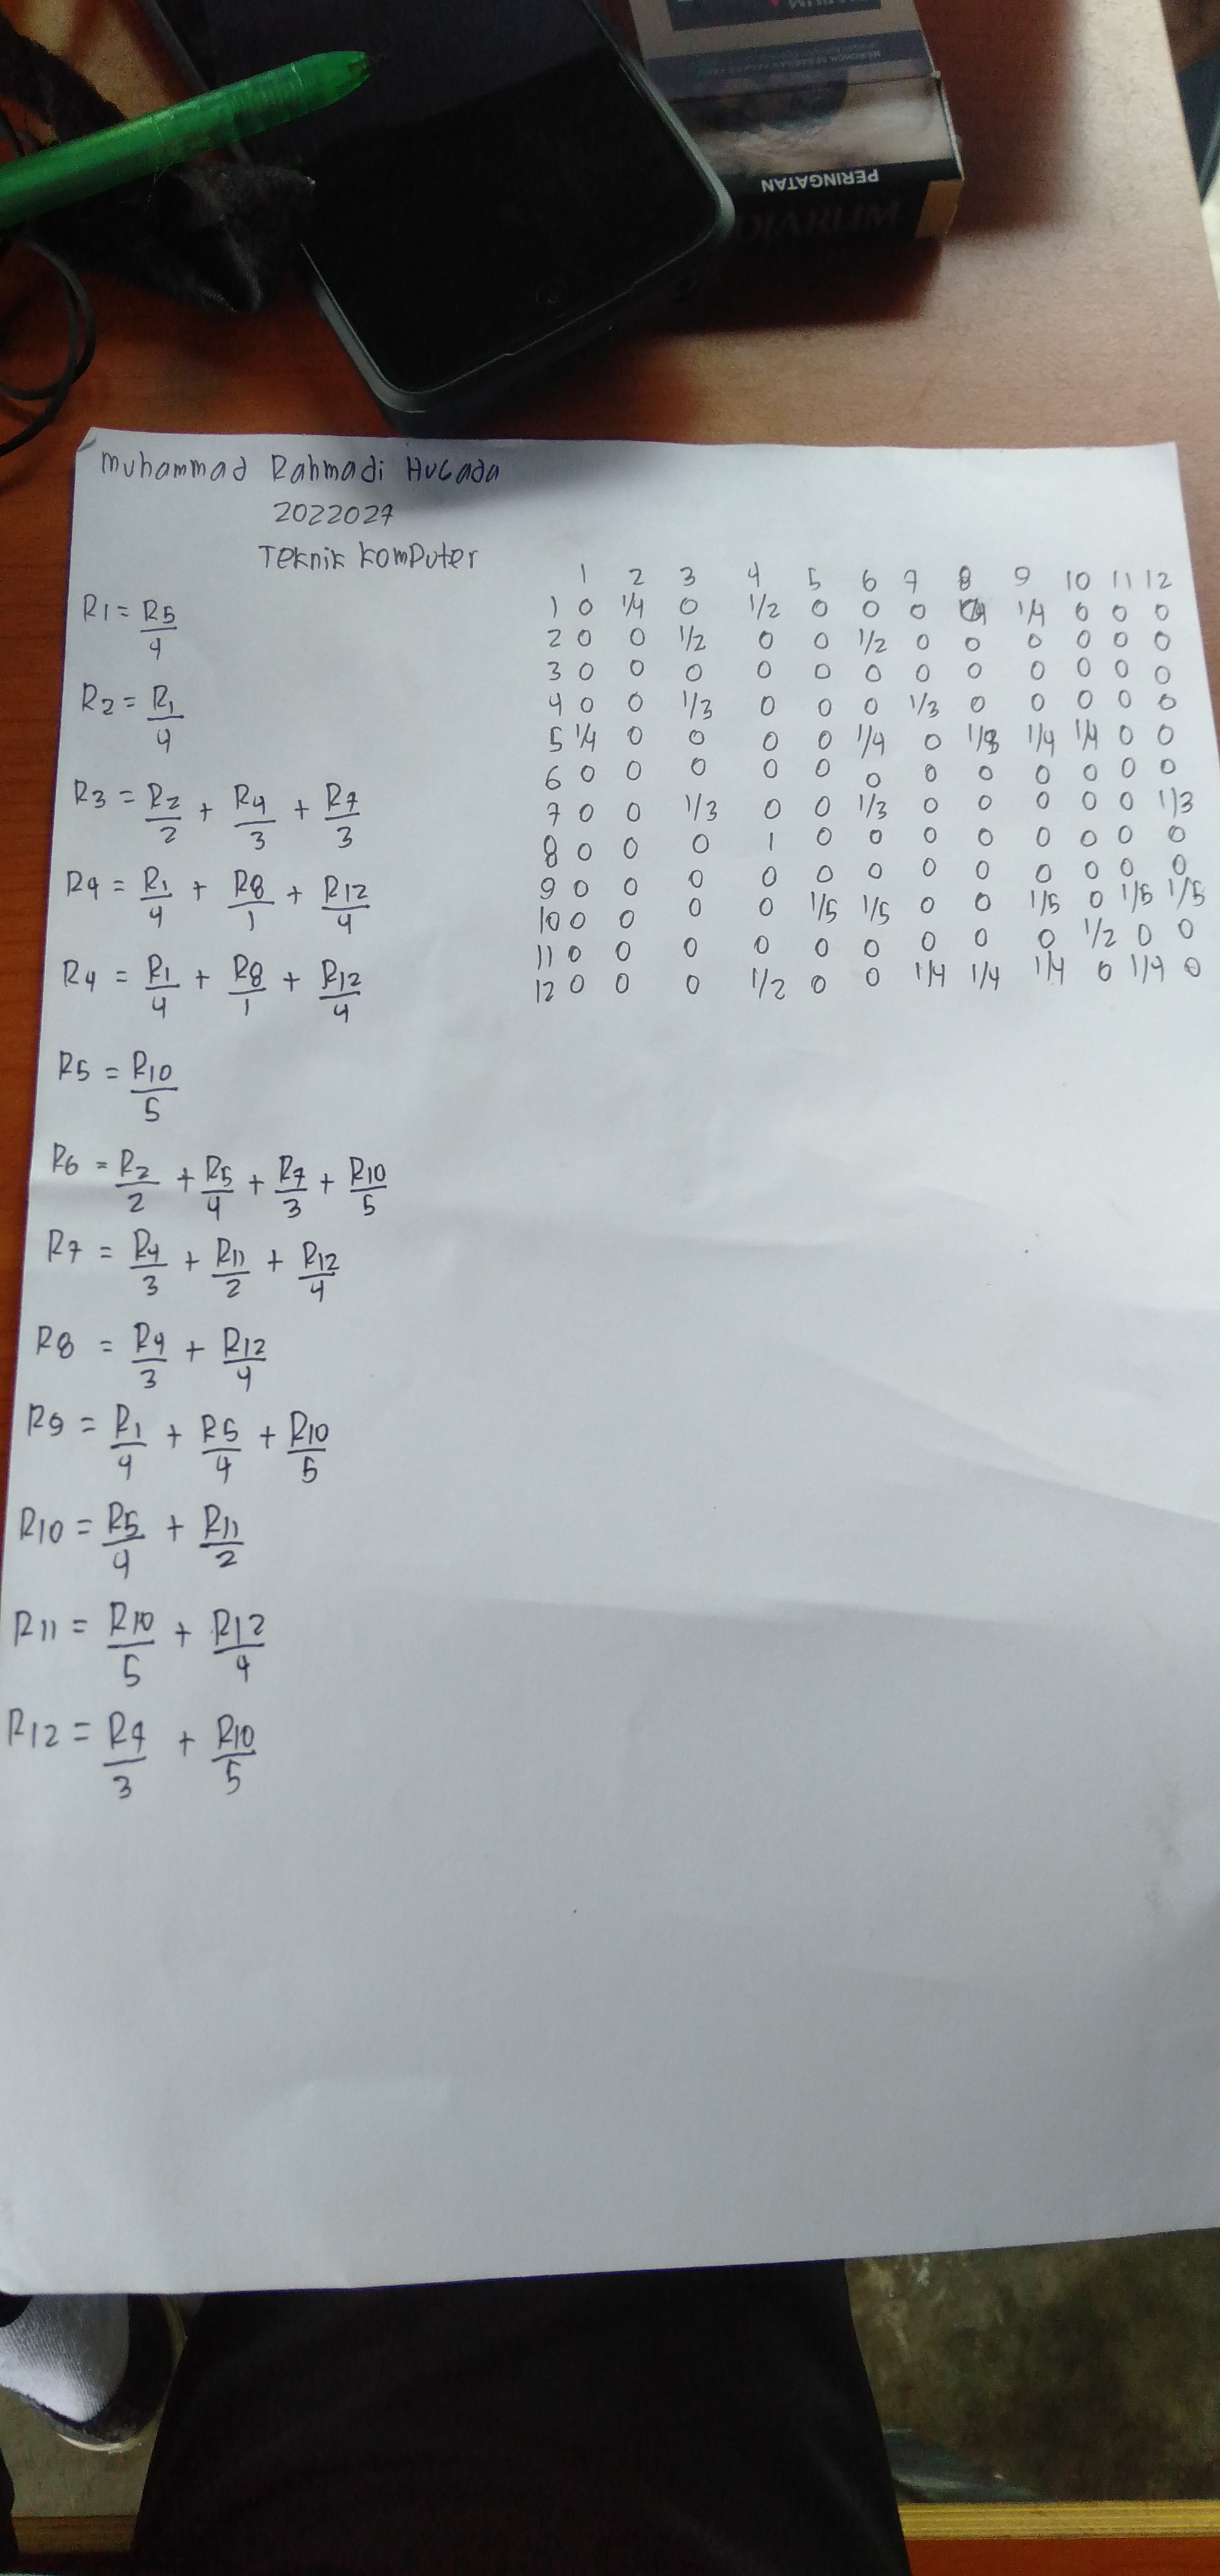 PERINGATAN
Muhammad Rahmadi Hucada
2022027
Teknik Komputer
R1 = R5/4
R2 = R1/4
R3 = R2/2 + R4/3 + R7/3
R4 = R1/4 + R8/1 + R12/4
R4 = R1/4 + R8/1 + R12/4
R5 = R10/5
R6 = R2/2 + R5/4 + R7/3 + R10/5
R7 = R4/3 + R11/2 + R12/4
R8 = R4/3 + R12/4
R9 = R1/4 + R5/4 + R10/5
R10 = R5/4 + R11/2
R11 = R10/5 + R12/4
R12 = R4/3 + R10/5
1 2 3 4 5 6 7 8 9 10 11 12
1 0 1/4 0 1/2 0 0 0 1/4 0 0 0
2 0 0 1/2 0 0 1/2 0 0 0 0 0 0
3 0 0 0 0 0 0 0 0 0 0 0 0
4 0 0 1/3 0 0 0 1/3 0 0 0 0 0
5 1/4 0 0 0 0 1/4 0 1/8 1/4 1/4 0 0
6 0 0 0 0 0 0 0 0 0 0 0 0
7 0 0 1/3 0 0 1/3 0 0 0 0 0 1/3
8 0 0 0 1 0 0 0 0 0 0 0 0
9 0 0 0 0 0 0 0 0 0 0 0 0
10 0 0 0 0 1/5 1/5 0 0 1/5 0 1/5 1/5
11 0 0 0 0 0 0 0 0 0 1/2 0 0
12 0 0 0 1/2 0 0 1/4 1/4 1/4 0 1/4 0